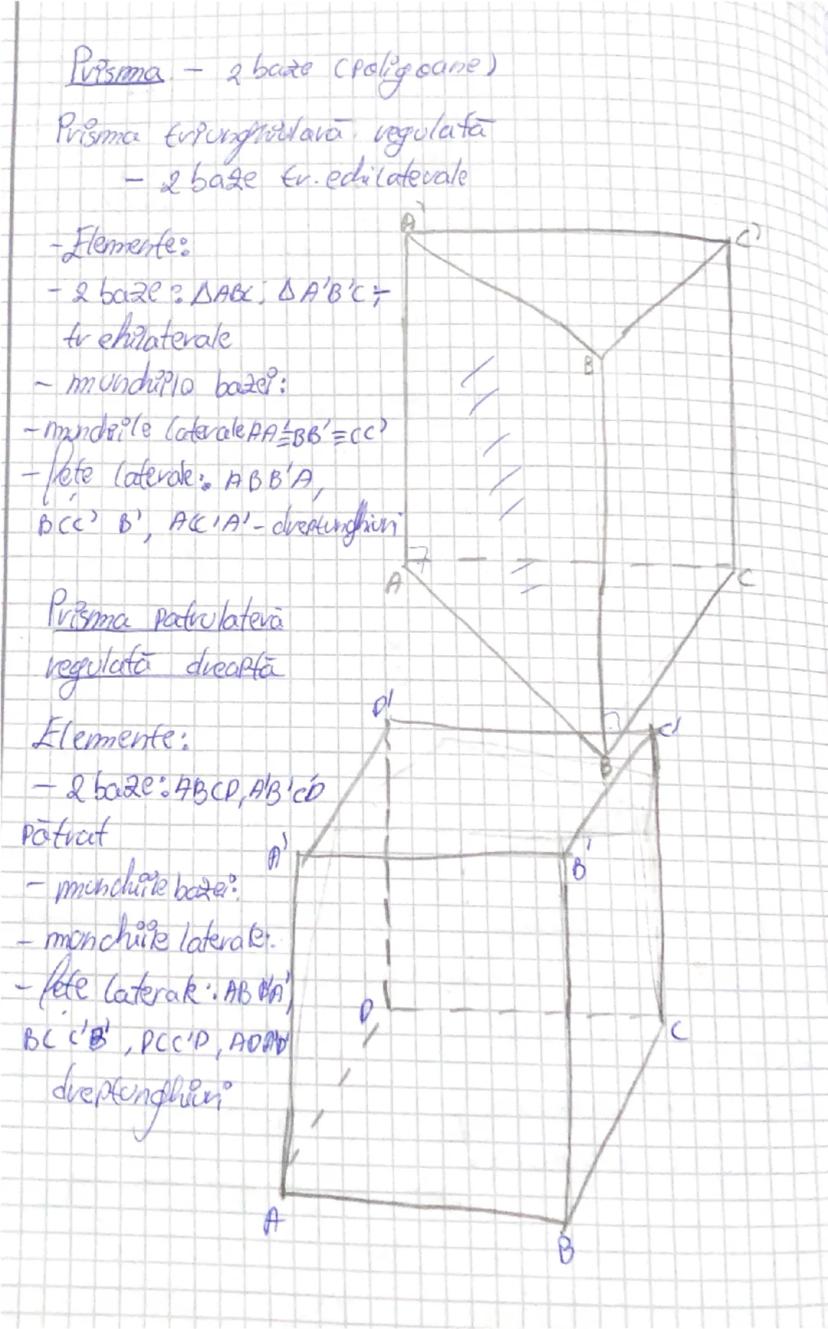 Prisma - 2 baze (poligoane)
Prisma triunghiulară regulată
- 2 baze tr. echilaterale
- Elemente:
- 2 baze: ΔABC; ΔA'B'C';
tr ehilaterale
- munchiile bazei:
- munchiile laterale AA'≡BB'≡CC'
- fețe laterale: ABB'A,
BCC'B', ACC'A' - dreptunghiuri
A'
C'
B
A
C
B
Prisma patrulateră
regulată dreaptă
Elemente:
- 2 baze: ABCD, A'B'C'D
pătrat
- munchiile bazei:
- monchiile laterale:
- fețe laterale:
BCC'B', DCC'D,
dreptunghiuri
D'
C'
A'
B'
D
C
A
B